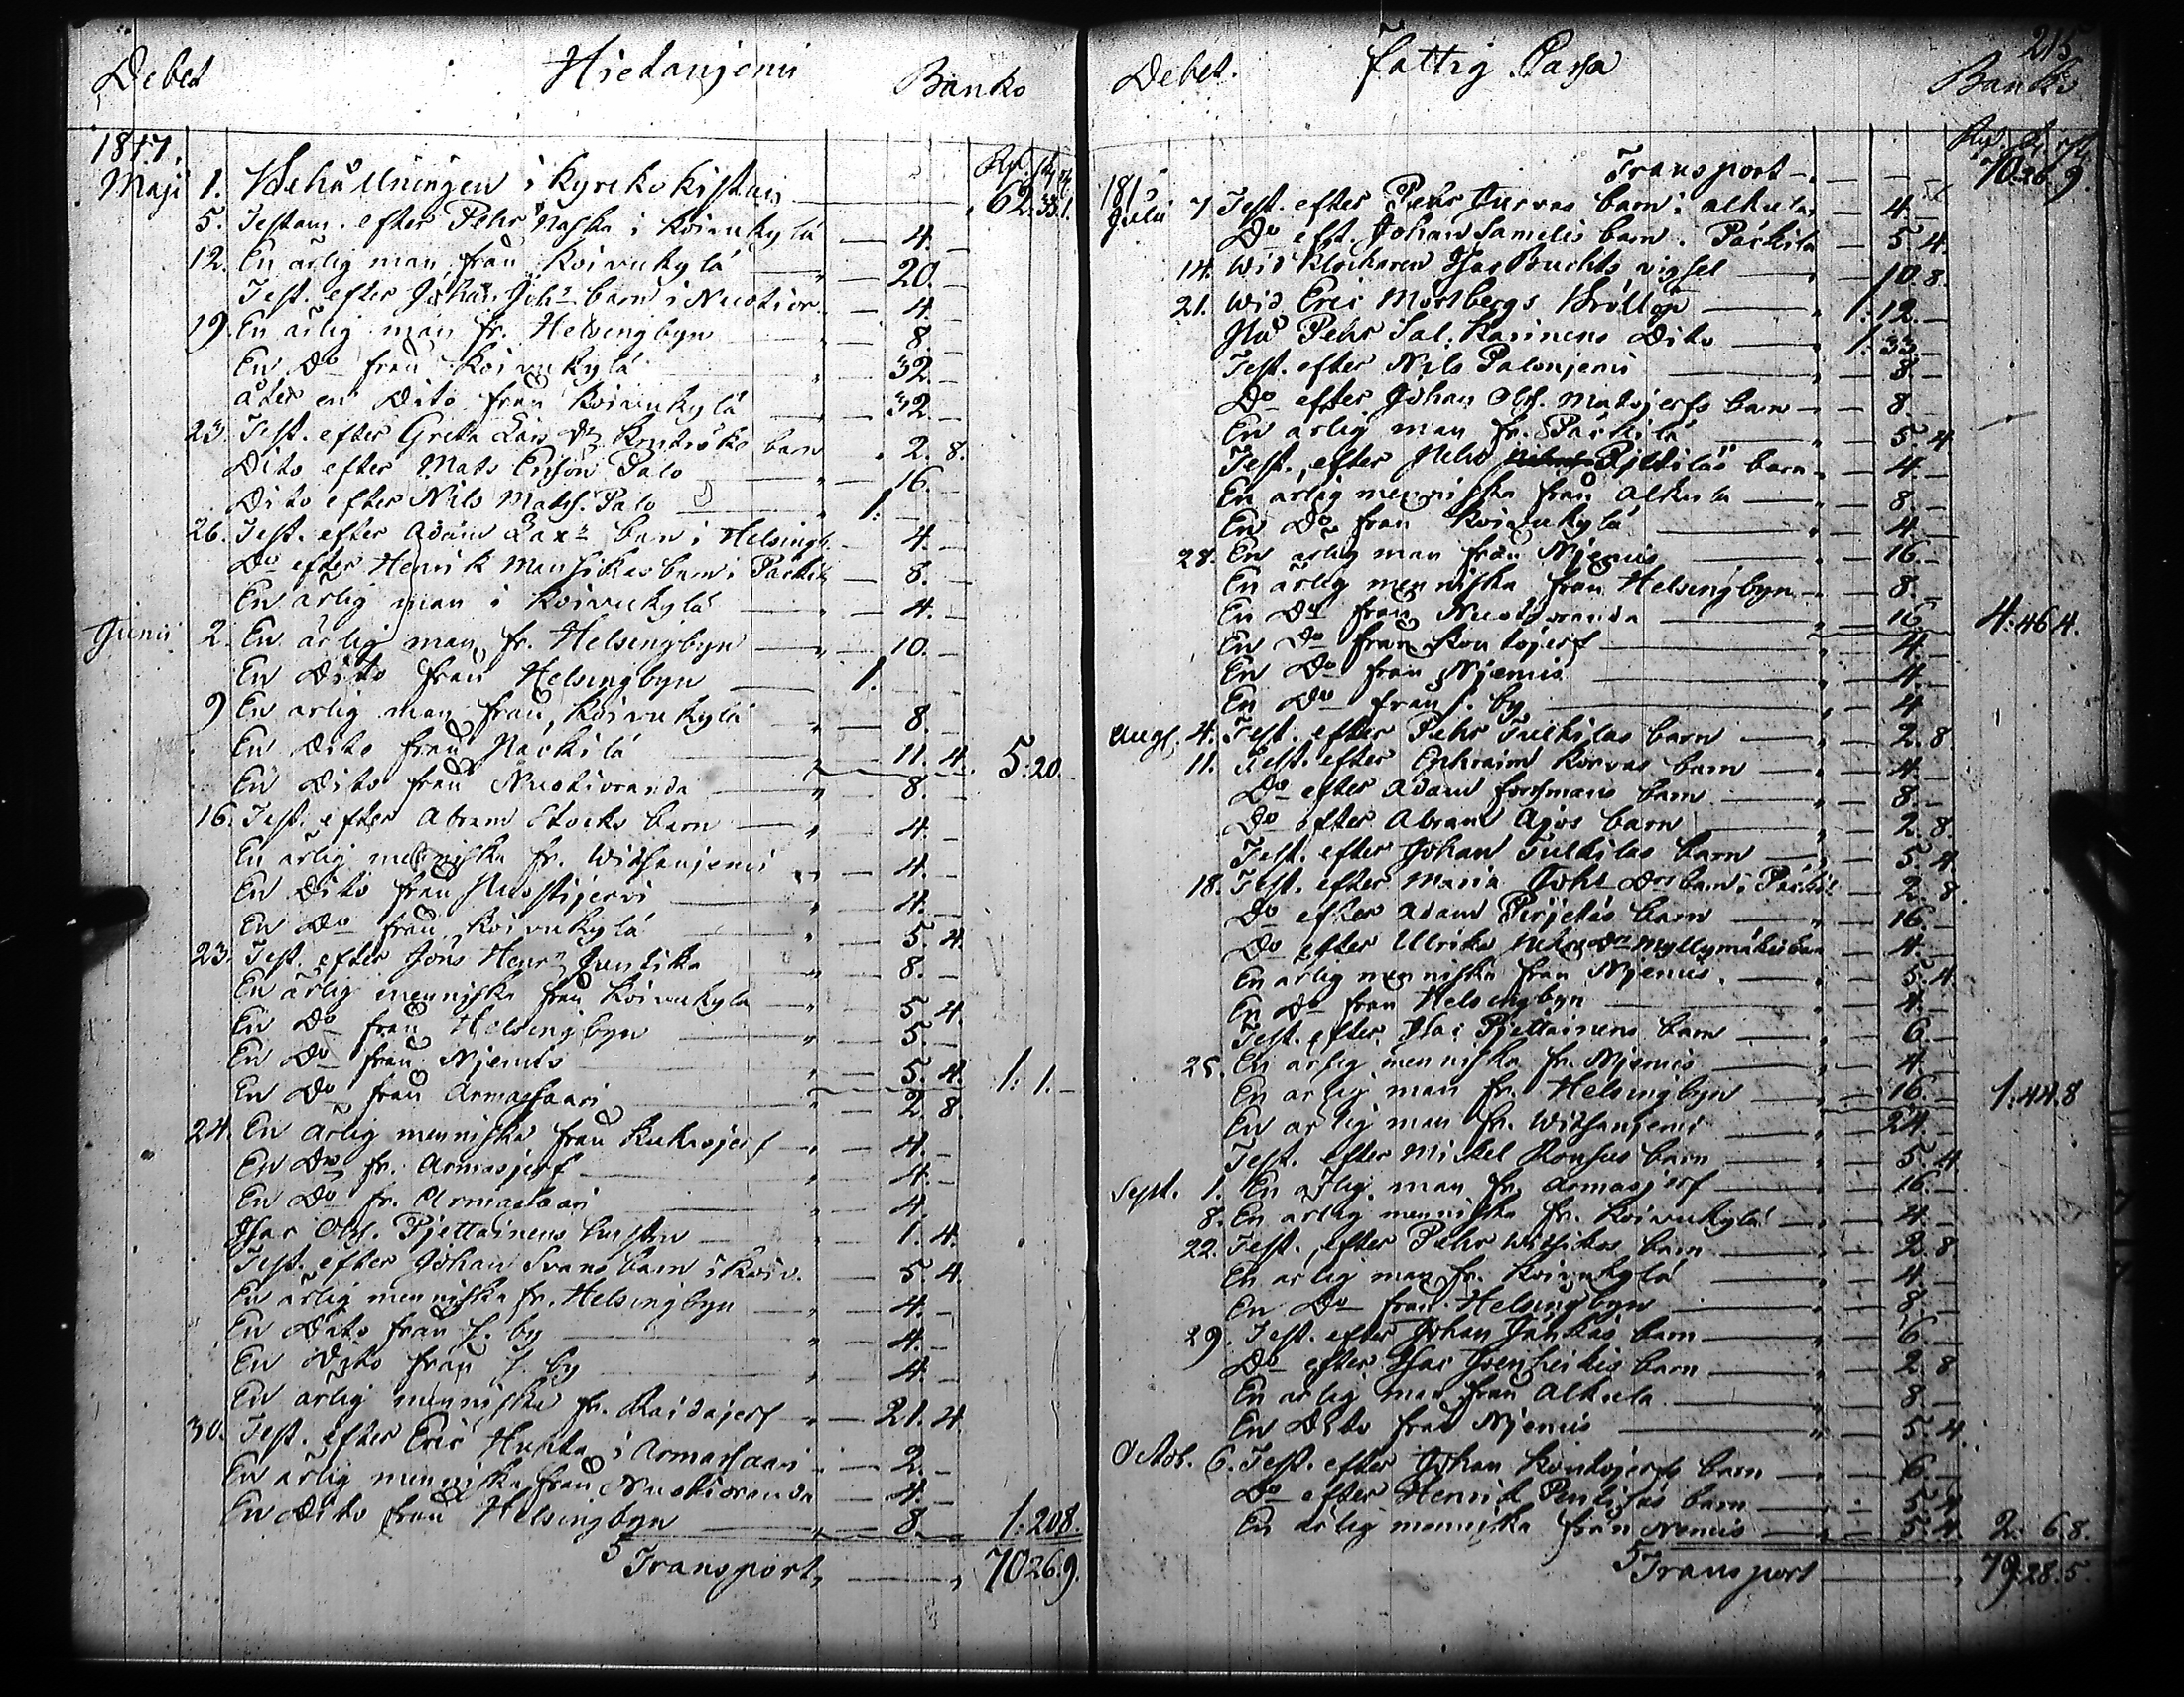 Debet Hietaniemi Banko
1817. Rd. sk. r.
Maji 1. Behållningen i Kyrko kistan 62. 33. 1.
5. Testam. efter Pehr Naska i Koivukylä 4. -
12. En ärlig man från Koivukylä 20. -
Test. efter Johan Joh:s barn i Nuotior. 4. -
19. En ärlig man fr. Helsingbyn 8. -
En Do från Koivukylä 32. -
åter en Dito från Koivukylä 32. -
23. Test. efter Greta Lars Dr barn 2. 8.
Dito efter Mats Ersson Palo 16. -
Dito efter Nils Matss. Palo 1. -
26. Test. efter Adam barn i Helsingb. 4. -
Do efter Henrik Mansikas barn i Päckilä 8. -
En ärlig man i Koivukylä 4. -
Junii 2. En ärlig man fr. Helsingbyn 10. -
En Dito från Helsingbyn 1.
9 En ärlig man från Koivukylä 8. -
En Dito från Päckilä 11. 4. 5. 20.
En Dito från Nuotioranda 8. -
16. Test. efter Abram Stocks barn 4. -
En ärlig menniska fr. Witsaniemi 4. -
En Dito från 4. -
En Do från Koivukylä 5. 4.
23. Test. efter Jöns Henr: Juntika 8. -
En ärlig menniska från Koivukylä 5. 4.
En Do från Helsingbyn 5. -
En Do från Njemis 5. 4. 1: 1. -
En Do från Armassaari 2. 8.
24. En ärlig menniska från Kukasjerf 4. -
En Do fr. Armasjerf 4. -
En Do fr. Armassaari 4.
Isac Olss. Pjettainens 1. 4.
Test. efter Johan Svans barn i Koiv. 5. 4.
En ärlig menniska fr. Helsingbyn 4. -
En Dito från s. by 4. -
En Dito från s. by 4. -
En ärlig menniska fr. Raidajerf 21. 4.
30. Test. efter Eric Huhta i Armassaari 2. -
En ärlig menniska från Nuotioranda 4. -
En Dito från Helsingbyn 8. - 1: 20 8.
Transport, 70 26. 9.
215
Debet. Fattig Cassa Banko
Rd. sk. r.
Transport 70. 26. 9.
181
Julii 7 Test. efter Pehr barn i Alkula 4. -
Do eft. Johan Samelis barn i Päckilä 5 4.
14. Wid Klockaren Isac vigsel 10. 8.
21. Wid Eric Mörtbergs Bröllop 1: 12. -
Pehr Sal. Karinens Dito 1: 33 -
Test. efter Nils Palonjemi 8. -
Do efter Johan Olss. Matojerfs barn 8. -
En ärlig man fr. Päckilä 5. 4
Test. efter barn 4. -
En ärlig menniska från Alkula 8. -
En Do från Koivukylä 4. -
28. En ärlig man från Njemis 16. -
En ärlig menniska från Helsingbyn 8. -
En Do från Nuotioranda 16 4: 46 4.
En Do från Kontojerf 4. -
En Do från Njemis 4. -
En Do från s. by 4
Augs. 4. Test. efter Pehr Tulkilas barn 2. 8.
11. Test. efter Ephraim Korvas barn 4. -
Do efter Adam Forssmans barn 8. -
Do efter Abram Ajos barn 2. 8.
Test. efter Johan Tulkilas barn 5. 4.
18. Test. efter Maria Johs Drs barn i Päckil 2 8.
Do efter Adam Pirjetäs barn 16. -
Do efter Ulrika Dr Myllymäkis barn 4. -
En ärlig menniska från Njemis. 5. 4.
En Do från Helsingbyn 4. -
Test. efter Isac Pjettainens barn 6. -
25. En ärlig menniska fr. Njemis 4. -
En ärlig man fr. Helsingbyn 16. - 1: 44. 8
En ärlig man fr. Witsaniemi 24. -
Test. efter Mickel Rousus barn 5. 4
Sept. 1. En ärlig man fr. Armasjerf 16. -
8. En ärlig menniska fr. Koivukylä 4. -
22. Test. efter Pehr Witikos barn 2. 8
En ärlig man fr. Koivukylä 4. -
En Do från Helsingbyn 8. -
29. Test. efter Johan Jankas barn 6. -
Do efter Isac barn 2. 8
En ärlig man från Alkula 8. -
En Dito från Njemis 5. 4.
Octob. 6. Test. efter Johan Kontojerfs barn 6. -
Do efter Henrik barn 5. 4
En ärlig menniska från Njemis 5. 4. 2. 6. 8.
Transport 79. 28. 5.